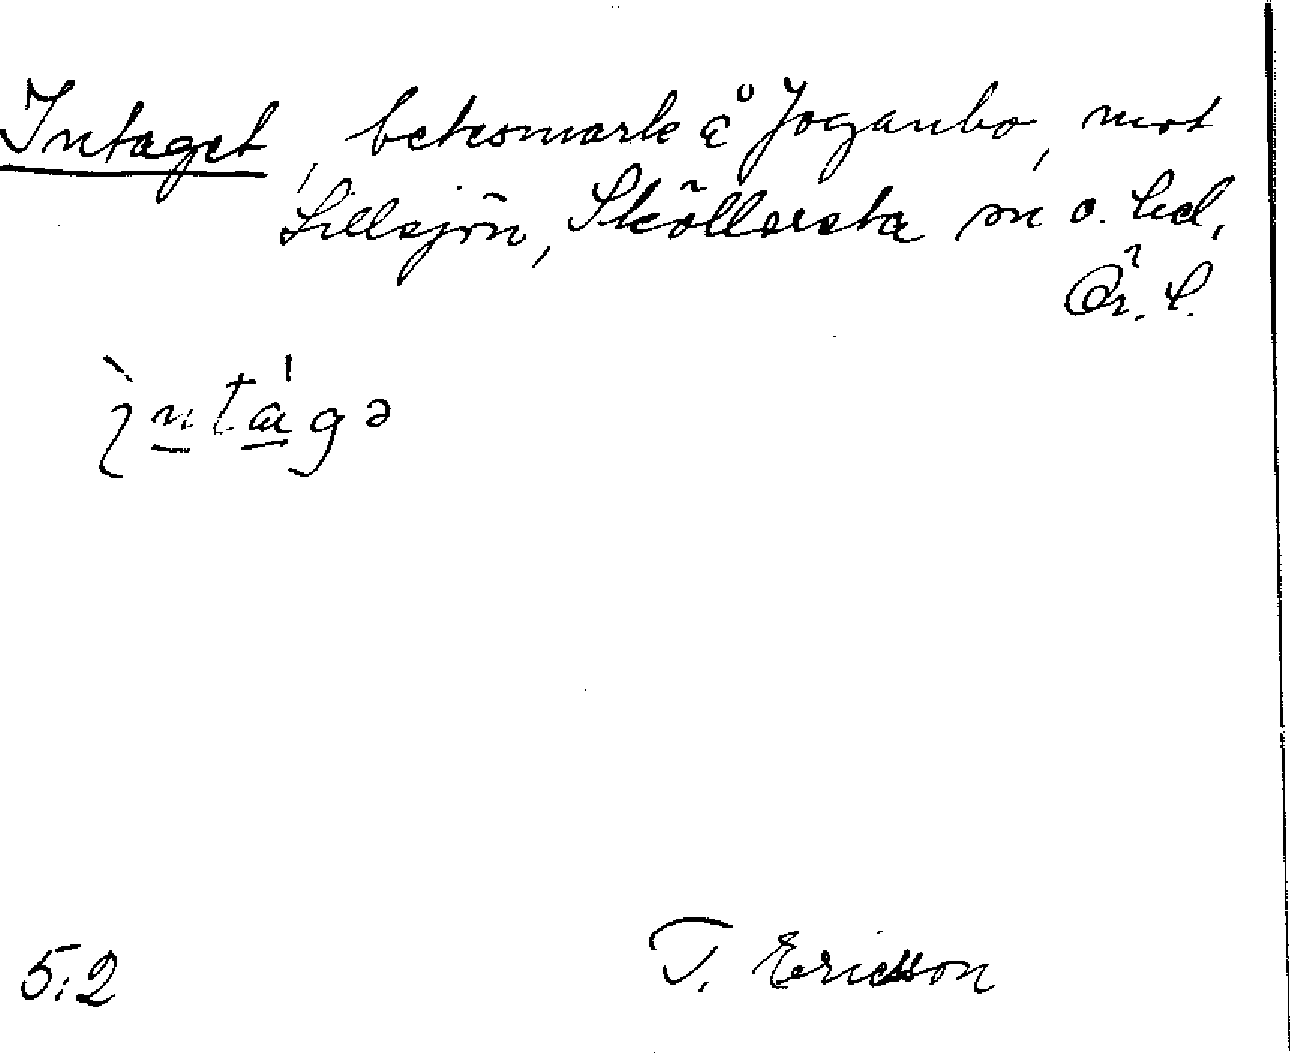 Intaget, betesmark å Joganbo, mot
Lillsjön, Sköllersta sn o. hd,
Ör. l.
ìntágə
5:2 T. Ericsson